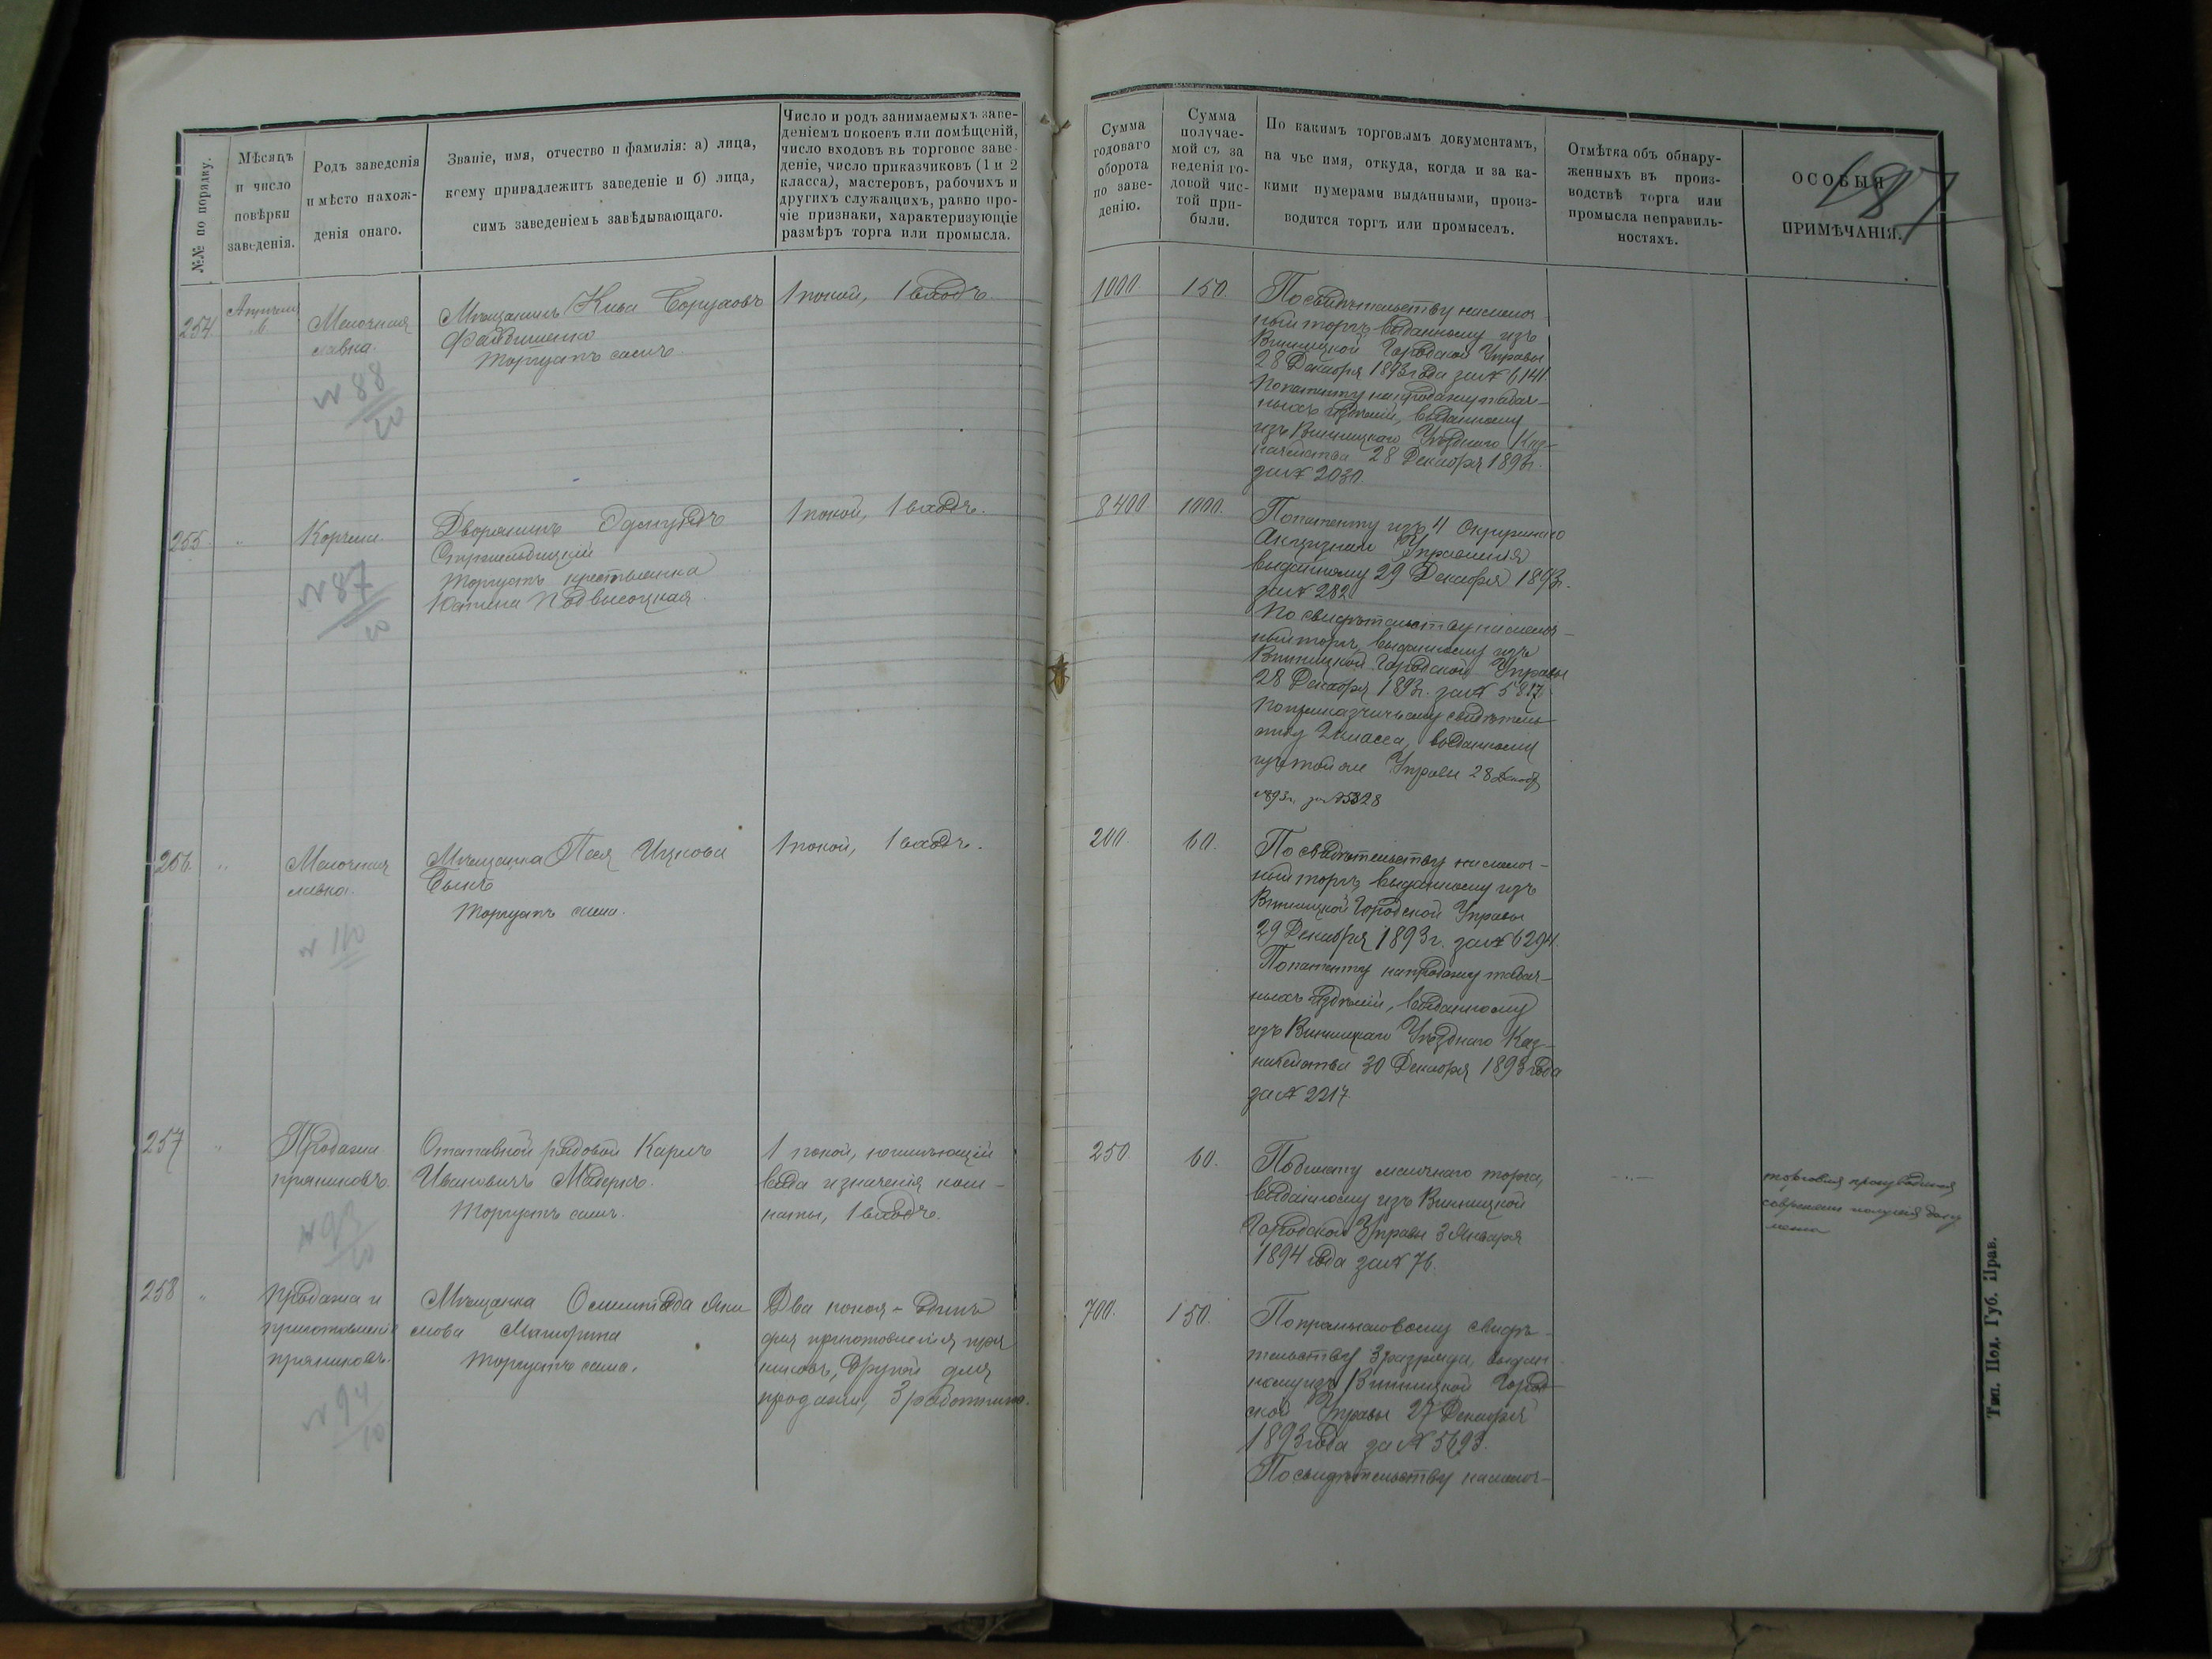 №№ по порядку.
Мѣсяцъ
и число
повѣрки
заведенія.
Родъ заведенія
и мѣсто нахож-
денія онаго.
Званіе, имя, отчество и фамилія: а) лица,
коему принадлежитъ заведеніе и б) лица,
симъ заведеніемъ завѣдывающаго.
Число и родъ занимаемыхъ заве-
деніемъ покоевъ или помѣщеній,
число входовъ въ торговое заве-
деніе, число приказчиковъ (1 и 2
класса), мастеровъ, рабочихъ и
другихъ служащихъ, равно про-
чіе признаки, характеризующіе
размѣръ торга или промысла.
Сумма
годоваго
оборота
по заве-
денію.
Сумма
получае-
мой съ за
веденія го-
довой чис-
той при-
были.
По какимъ торговымъ документамъ,
на чье имя, откуда, когда и за ка-
кими нумерами выданными, произ-
водится торгъ или промыселъ.
Отмѣтка объ обнару-
женныхъ въ произ-
водствѣ торга или
промысла неправиль-
ностяхъ.
ОСОБЫЯ
ПРИМѢЧАНІЯ.
187
254
Мелочная
лавка.
№ 88
Мѣщанинъ Боруховъ
Торгуетъ самъ.
1 покой, 1 входъ
1000
150.
По свидѣтельству на мелоч-
ный торгъ, выданному изъ
Винницкой Городской Управы
28 Декабря 1893 года за № 6141.
По патенту на продажу табач-
ныхъ издѣлій, выданному
изъ Винницкаго Уѣзднаго Каз-
начейства 28 Декабря 1893 г.
за № 2030
255.
"
Корчма.
№ 87
Дворянинъ Эдмундъ
Торгуетъ крестьянка
Подвысоцкая.
1 покой, 1 входъ.
8400
1000.
По патенту изъ 4 Окружнаго
Акцизнаго Управленія
выданному 29 Декабря 1893 г.
за № 282
По свидѣтельству на мелоч-
ный торгъ, выданному изъ
Винницкой Городской Управы
28 Декабря 1893 г. за № 5817
По приказчичьему свидѣтель-
ству 2 класса, выданному
изъ той же Управы 28 Декабр
1893 г. за № 5828
256.
"
Мелочная
лавка.
№ 110
Мѣщанка Песя Ицкова
Быкъ
Торгуетъ сама.
1 покой, 1 входъ.
200
60.
По свидѣтельству на мелоч-
ный торгъ, выданному изъ
Винницкой Городской Управы
29 Декабря 1893 г. за № 6294.
По патенту на продажу табач-
ныхъ издѣлій, выданному
изъ Винницкаго Уѣзднаго Каз-
начейства 30 Декабря 1893 года
за № 2217
257
"
Продажа
пряниковъ.
№ 93
Отставной рядовой Карлъ
Ивановичъ
Торгуетъ самъ.
1 покой, не имѣющій
вида и значенія ком-
наты, 1 входъ.
250.
60.
По билету мелочнаго торга,
выданному изъ Винницкой
Городской Управы 3 Января
1894 года за № 76.
торговля производится
документа
258
"
Продажа и
приготовленіе
пряниковъ.
№ 94
Мѣщанка
Торгуетъ сама.
Два покоя - одинъ
для приготовленія пря
никовъ, другой для
продажи, 3 работника.
700.
150.
По промысловому свидѣ-
тельству 3 разряда, выдан-
ному изъ Винницкой Город-
ской Управы 27 Декабря
1893 года за № 5693.
По свидѣтельству на мелоч-
Тип. Под. Губ. Прав.